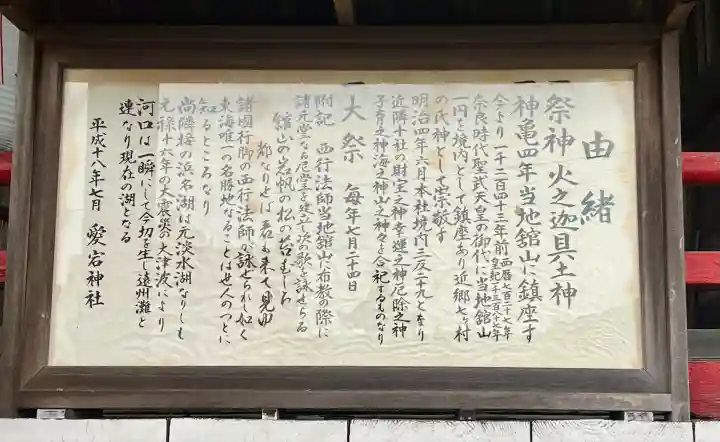 由緒
一祭神 火之迦具土神
一神亀四年当地舘山に鎮座す
今より一千二百四十三年前 西暦七百二十七年
皇紀一千三百八十七年
奈良時代聖武天皇の御代に当地舘山
一円を境内として鎮座あり近郷七ヶ村
の氏神として崇敬す
明治四年六月本社境内三反二十九となり
近隣十社の財宝之神幸運之神厄除之神
子育之神海之神山之神々を合祀するものなり
一大祭 毎年七月二十四日
附記 西行法師当地舘山へ布教の際に
諸元堂なる尼堂を建立し次の歌を詠せらる
舘山の岩帆の松の苔むしろ
都なりせば君も来て見ゆ
諸国行脚の西行法師が詠せられし如く
東海唯一の名勝地なることは世人のつとに
知るところなり
尚隣接の浜名湖は元淡水湖なりしも
元禄十六年の大震災の大津波により
河口は一瞬にして今切を生し遠州灘と
連なり現在の湖となる
平成十八年七月 愛宕神社